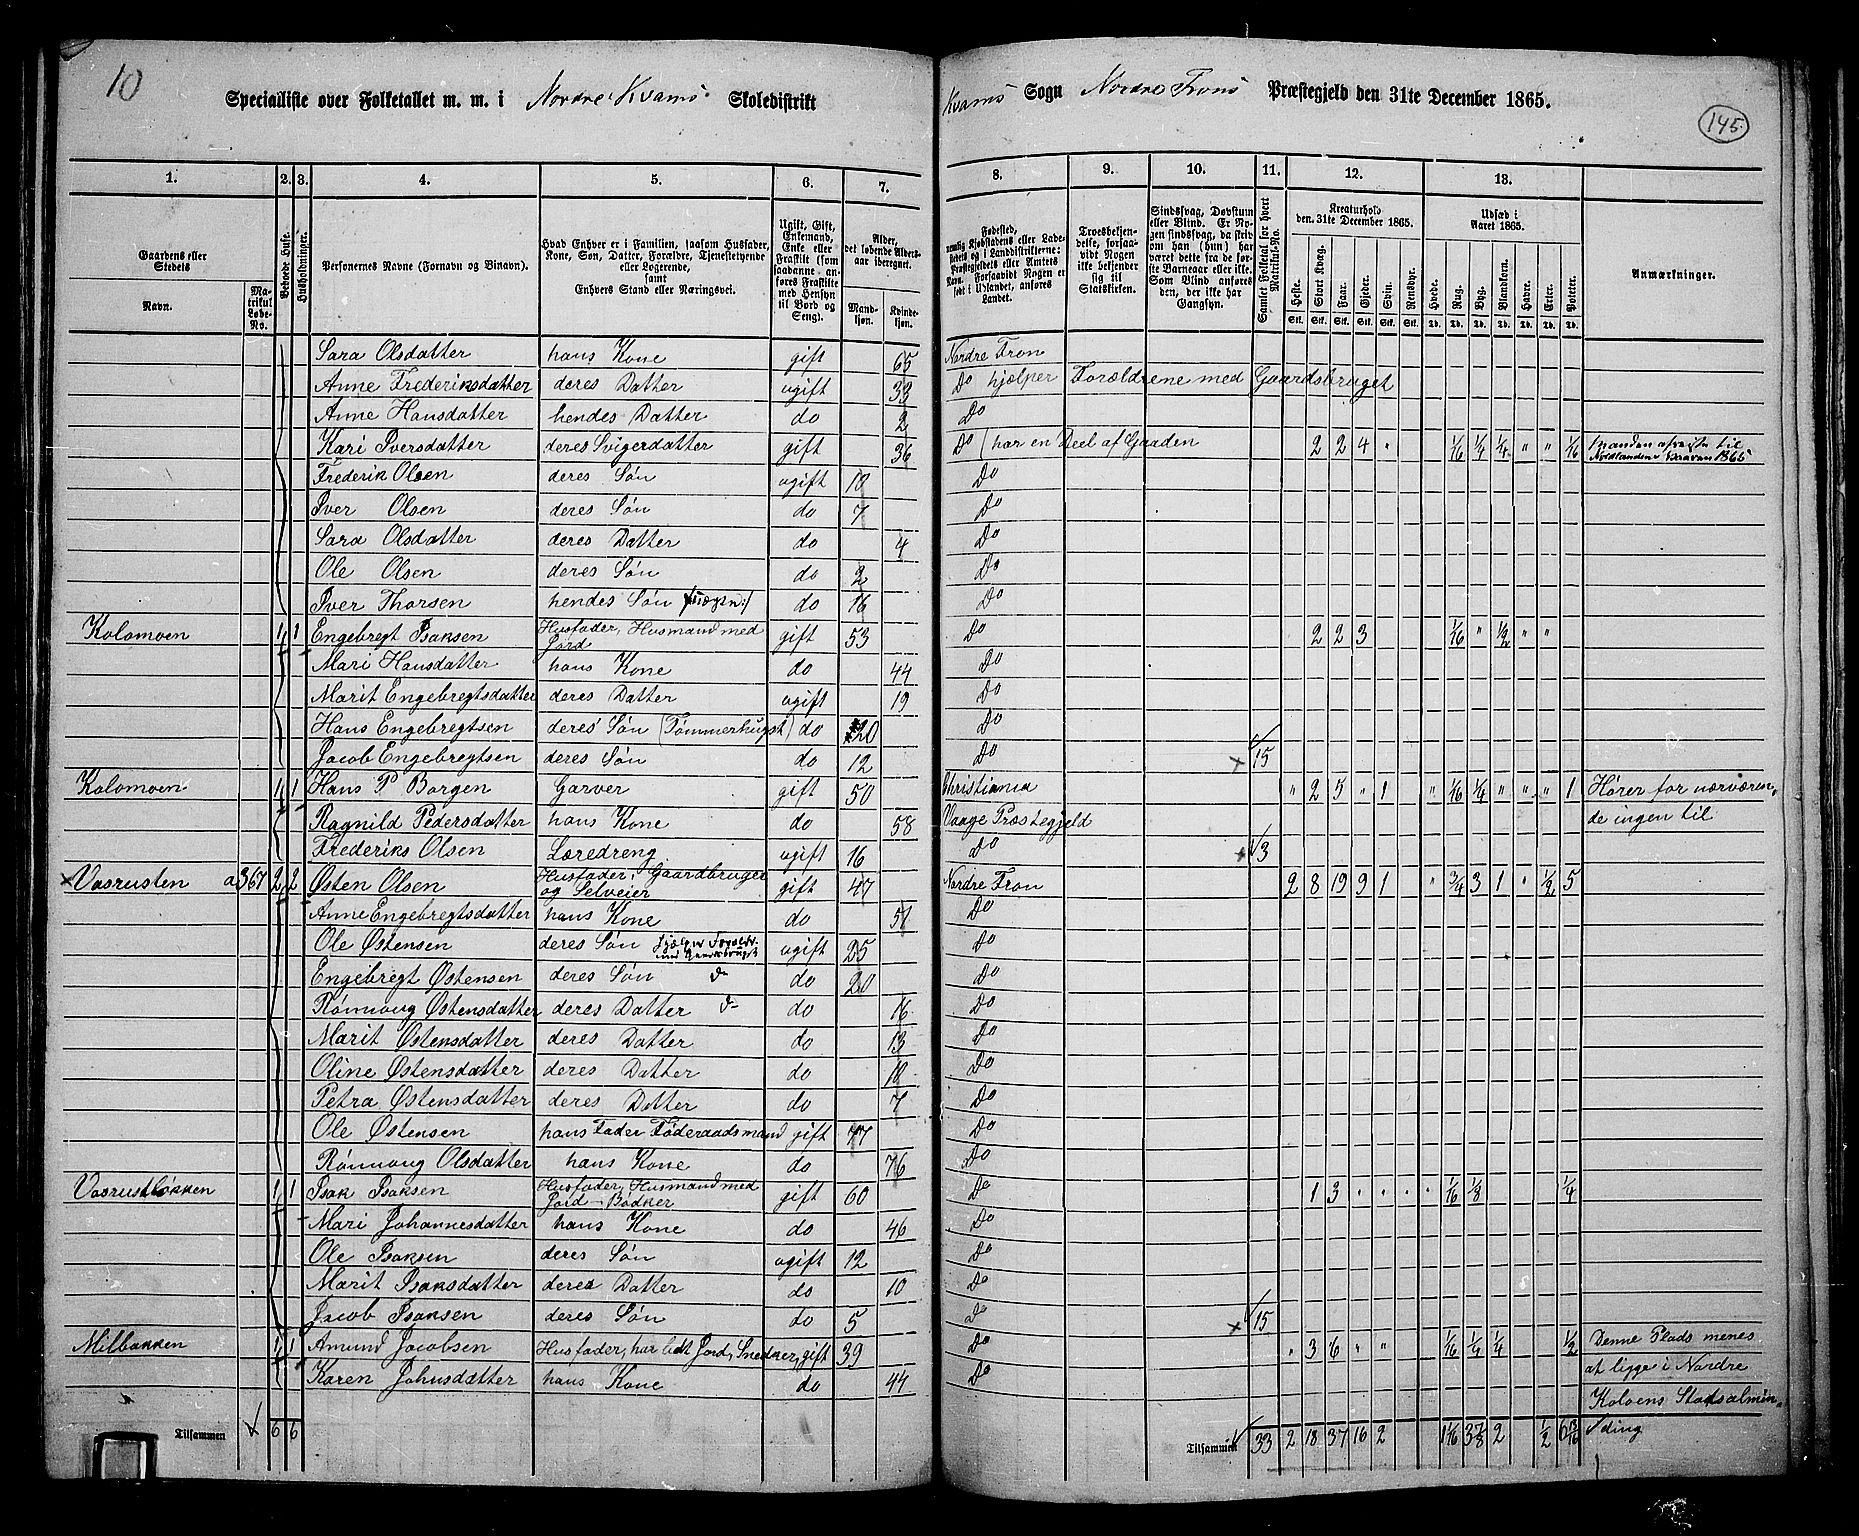 10
Specialliste over Folketallet m. m. i Nordre Kvams Skoledistrikt
Kvams Sogn Nordre Frons Præstegjeld den 31te December 1865.
145.
1. 2. 3. 4. 5. 6. 7. 8. 9. 10. 11. 12. 13.
Gaardens eller Stedets
Navn.
Matrikul Løbe-No.
Beboede Huse.
Husholdninger.
Personernes Navne (Fornavn og Binavn).
Hvad Enhver er i Familien, saasom Husfader, Kone, Søn, Datter, Forældre, Tjenestetyende eller Logerende, samt Enhvers Stand eller Næringsvei.
Ugift, Gift, Enkemand, Enke eller Fraskilt (som saadanne anføres Fraskilte med Hensyn til Bord og Seng).
Alder, det løbende Aldersaar iberegnet.
Mandkjøn. Kvindekjøn.
Fødested, nemlig Kjøbstadens eller Ladestedets og i Landdistrikterne: Præstegjeldets eller Amtets Navn. Forsaavidt Nogen er født i Udlandet, anføres Landet.
Troesbekjendelse, forsaavidt Nogen ikke bekjender sig til Statskirken.
Sindssvag, Døvstum eller Blind. Er Nogen sindssvag, da skrives om han (hun) har været dette fra de første Barneaar eller ikke. Som Blind anføres den, der ikke har Gangsyn.
Samlet Folketal for hvert Matrikul-No.
Kreaturhold den 31te December 1865.
Heste. Stort Kvæg. Faar. Gjeder. Svin. Rensdyr.
Udsæd i Aaret 1865.
Hvede. Rug. Byg. Blandkorn. Havre. Erter. Poteter.
Anmærkninger.
Sara Olsdatter hans Kone gift 65 Nordre Fron
Anne Frederiksdatter deres Datter ugift 33 Do hjælper Forældrene med Gaardsbruget
Anne Hansdatter hendes Datter do 2 Do
Kari Iversdatter deres Svigerdatter gift 36 Do (har en Deel af Gaarden 2 2 4 " 1/16 1/4 1/4 " " 1/16 Manden afreiste til Nordlandene Vaaren 1865
Frederik Olsen deres Søn ugift 10 Do
Iver Olsen deres Søn do 7 Do
Sara Olsdatter deres Datter do 4 Do
Ole Olsen deres Søn do 2 Do
Iver Thorsen hendes Søn do 16 Do
Kolomoen 1 1 Engebregt Isaksen Husfader, Husmand med Jord gift 53 Do 2 2 3 1/16 " 1/2 " "
Mari Hansdatter hans Kone do 44 Do
Marit Engebregtsdatter deres Datter ugift 19 Do
Hans Engebregtsen deres Søn (Tømmerhugst) do 20 Do
Jacob Engebregtsen deres Søn do 12 Do 15
Kolomoen 1 1 Hans P Borgen Garver gift 50 Christiania " 2 5 " 1 " 1/16 1/4 " " " 1 Hører for nærværen-
Ragnild Pedersdatter hans Kone do 58 Vaage Præstegjeld de ingen til
Frederiks Olsen Læredreng ugift 16 do 3
Vasrusten a367 2 2 Østen Olsen Husfader, Gaardbruger og Selveier gift 47 Nordre Fron 2 8 19 9 1 " 3/4 3 1 " 1/2 5
Anne Engebregtsdatter hans Kone do 51 Do
Ole Østensen deres Søn hjælper Forældr. med Gaardsbruget ugift 25 Do
Engebregt Østensen deres Søn do do 20 Do
Rønnoug Østensdatter deres Datter do do 16 Do
Marit Østensdatter deres Datter do 13 Do
Oline Østensdatter deres Datter do 10 Do
Petra Østensdatter deres Datter do 7 Do
Ole Østensen hans Fader Føderaadsmand gift 77 Do
Rønnoug Olsdatter hans Kone do 76 Do
Vasrustløkken 1 1 Isak Isaksen Husfader, Husmand med Jord - Bødker gift 60 Do 1 3 " " " 1/16 1/8 1/4
Mari Johannesdatter hans Kone do 46 Do
Ole Isaksen deres Søn ugift 12 Do
Marit Isaksdatter deres Datter do 10 Do
Jacob Isaksen deres Søn do 5 Do 15
Milbakken 1 1 Amund Jacobsen Husfader, har lidt Jord, Snedker, gift 39 Do " 3 6 " " 1/16 1/4 1/4 1/2 Denne Plads menes
Karen Johnsdatter hans Kone do 44 Do at ligge i Nordre
Koloens Statsalmin-
Tilsammen 6 6 Tilsammen 33 2 18 37 16 2 1 1/16 3 7/8 2 1/2 6 13/16 ding